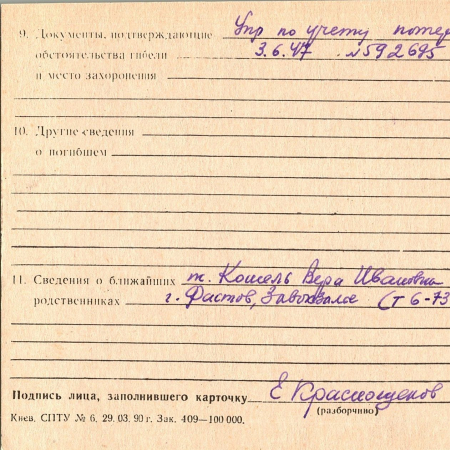 9. Документы, подтверждающие Упр по учету потер
обстоятельства гибели 3.6.47 №592695
и место захоронения
10. Другие сведения
о погибшем
11. Сведения о ближайших т. Кошель Вера Ивановна
родственниках г. Фастов, (т 6-73
Подпись лица, заполнившего карточку Е Краснощеков
(разборчиво)
Киев. СПТУ № 6. 29. 03. 90 г. Зак. 409—100 000.